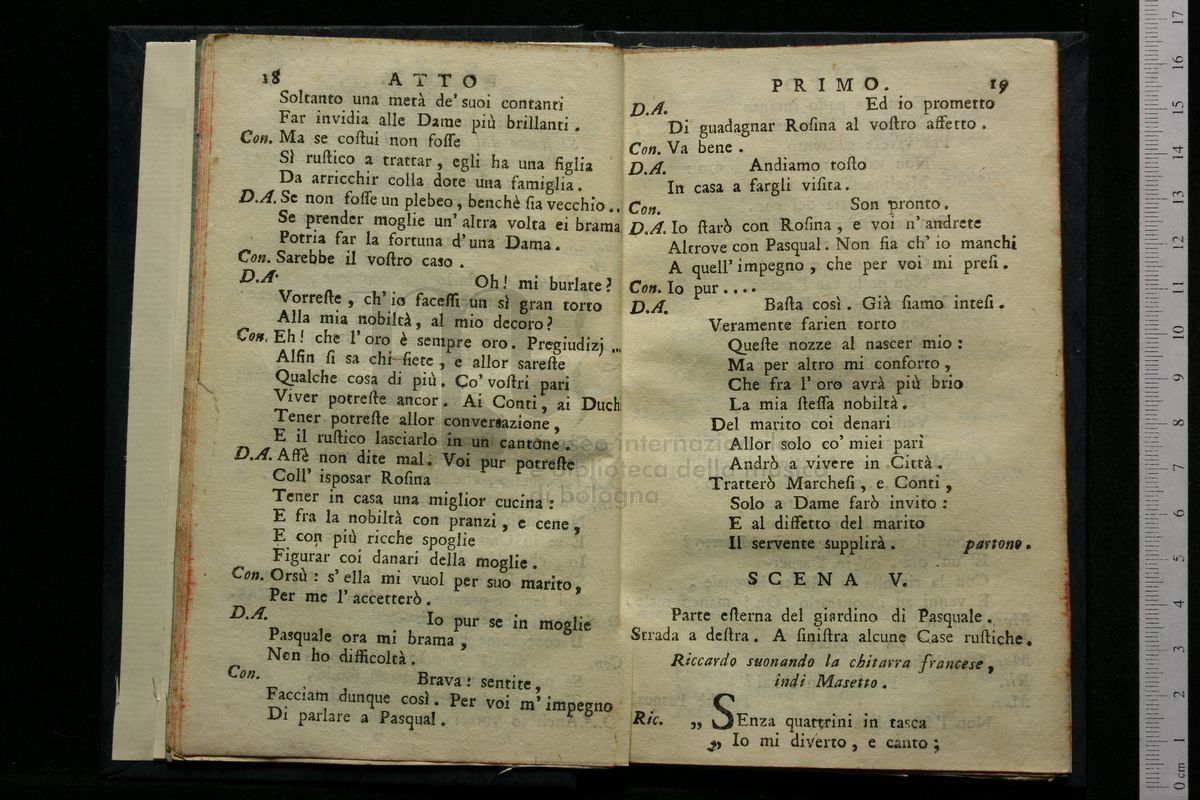 18 ATTO
Soltanto una metà de' suoi contanti
Far invidia alle Dame più brillanti.
Con. Ma se coſtui non foſſe
Sì ruſtico a trattar, egli ha una figlia
Da arricchir colla dote una famiglia.
D.A. Se non foſſe un plebeo, benchè ſia vecchio..
Se prender moglie un' altra volta ei brama
Potria far la fortuna d'una Dama.
Con. Sarebbe il voſtro caso.
D.A. Oh! mi burlate?
Vorreſte, ch' io faceſſi un sì gran torto
Alla mia nobiltà, al mio decoro?
Con. Eh! che l'oro è sempre oro. Pregiudizj ...
Alfin ſi sa chi ſiete, e allor sareſte
Qualche cosa di più. Co' voſtri pari
Viver potreſte ancor. Ai Conti, ai Duchi
Tener potreſte allor conversazione,
E il ruſtico lasciarlo in un cantone.
D.A. Affè non dite mal. Voi pur potreſte
Coll' isposar Roſina
Tener in casa una miglior cucina:
E fra la nobiltà con pranzi, e cene,
E con più ricche spoglie
Figurar coi danari della moglie.
Con. Orsù: s'ella mi vuol per suo marito,
Per me l'accetterò.
D.A. Io pur se in moglie
Pasquale ora mi brama,
Non ho difficoltà.
Con. Brava: sentite,
Facciam dunque così. Per voi m'impegno
Di parlare a Pasqual.
PRIMO. 19
D.A. Ed io prometto
Di guadagnar Roſina al voſtro affetto.
Con. Va bene.
D.A. Andiamo toſto
In casa a fargli viſita.
Con. Son pronto.
D.A. Io ſtarò con Roſina, e voi n'andrete
Altrove con Pasqual. Non ſia ch' io manchi
A quell'impegno, che per voi mi preſi.
Con. Io pur....
D.A. Baſta così. Già ſiamo inteſi.
Veramente farien torto
Queſte nozze al nascer mio:
Ma per altro mi conforto,
Che fra l'oro avrà più brio
La mia ſteſſa nobiltà.
Del marito coi denari
Allor solo co' miei pari
Andrò a vivere in Città.
Tratterò Marcheſi, e Conti,
Solo a Dame farò invito:
E al diffetto del marito
Il servente supplirà. partono.
SCENA V.
Parte eſterna del giardino di Pasquale.
Strada a deſtra. A ſiniſtra alcune Case ruſtiche.
Riccardo suonando la chitarra francese,
indi Masetto.
Ric. „ SEnza quattrini in tasca
„ Io mi diverto, e canto;
museo internazionale
e biblioteca della musica
di bologna
0 cm 1 2 3 4 5 6 7 8 9 10 11 12 13 14 15 16 17